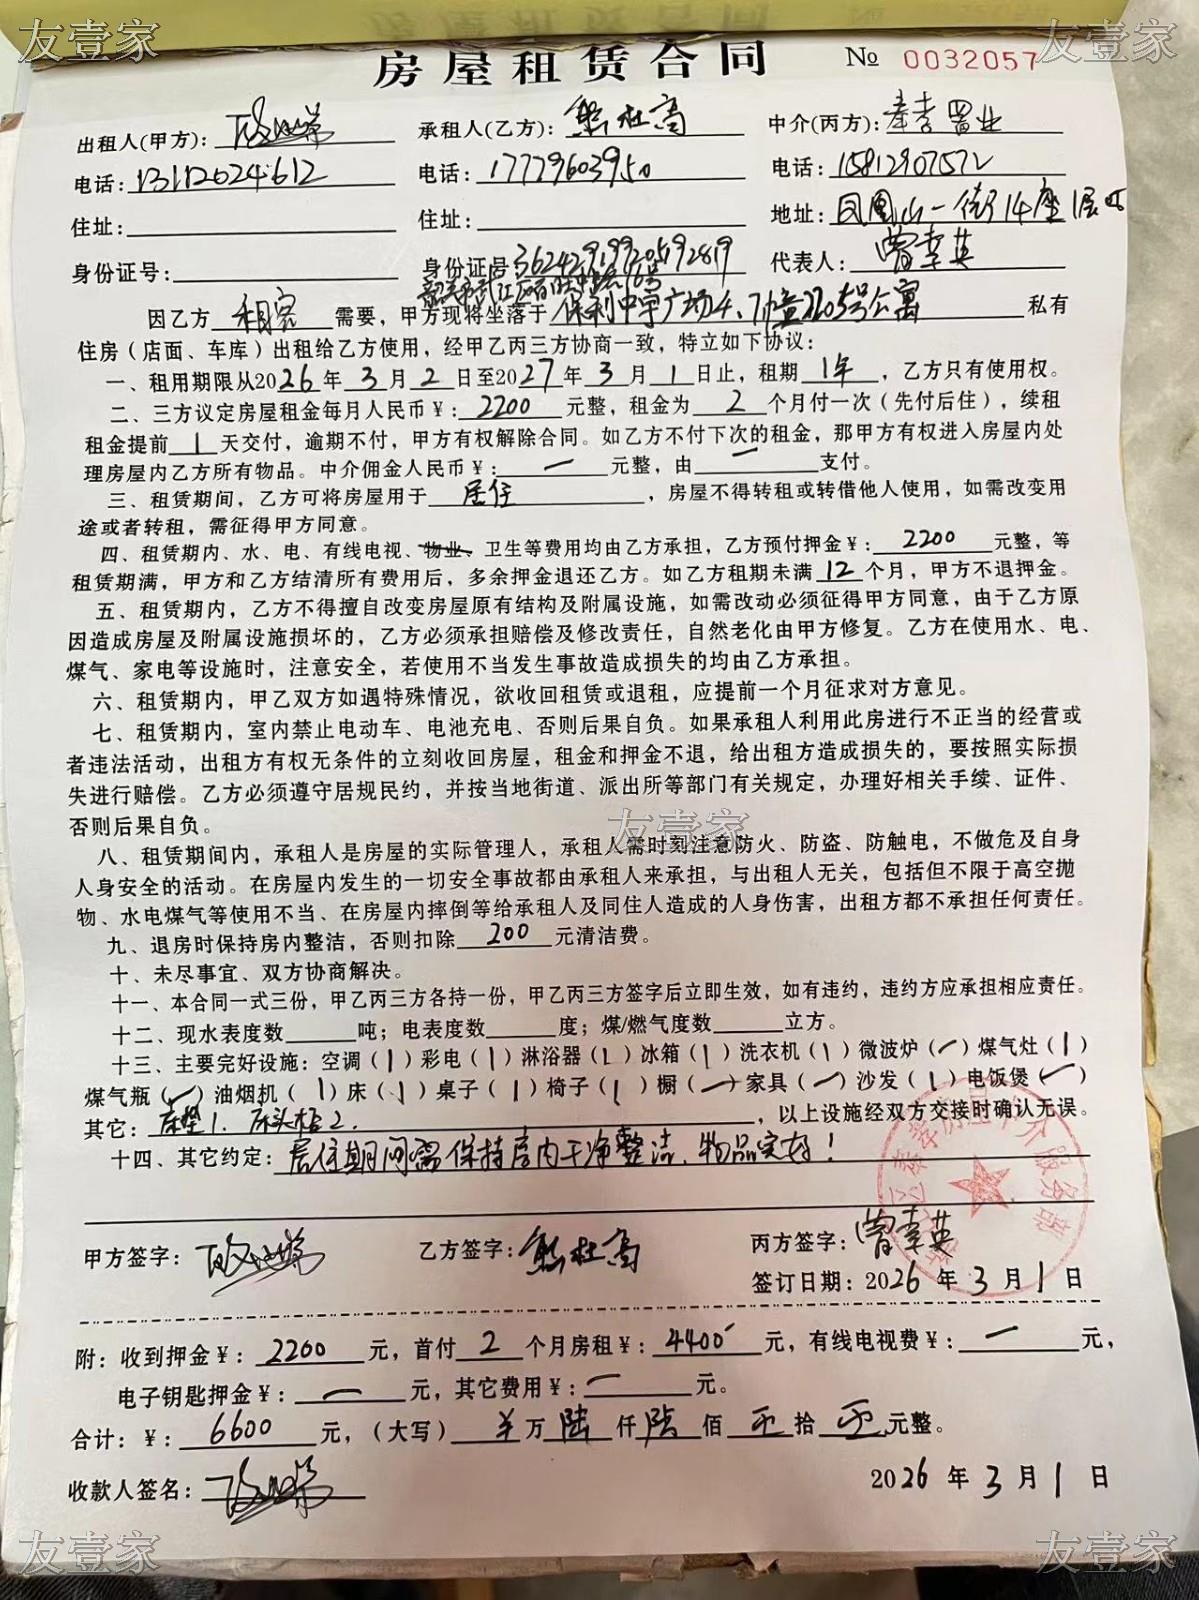 友壹家
友壹家
房屋租赁合同 № 0032057
出租人(甲方): 承租人(乙方): 熊杜高 中介(丙方): 泰幸置业
电话: 13112624612 电话: 17779603950 电话: 15812907572
住址: 住址: 地址: 凤凰山一街14座1层
身份证号: 身份证号 362429199205192819 代表人: 曾幸英
因乙方 租客 需要，甲方现将坐落于 保利中宇广场4、7幢2205号公寓 私有
住房（店面、车库）出租给乙方使用，经甲乙丙三方协商一致，特立如下协议：
一、租用期限从2026年3月2日至2027年3月1日止，租期 1年，乙方只有使用权。
二、三方议定房屋租金每月人民币￥: 2200 元整，租金为 2 个月付一次（先付后住），续租
租金提前 1 天交付，逾期不付，甲方有权解除合同。如乙方不付下次的租金，那甲方有权进入房屋内处
理房屋内乙方所有物品。中介佣金人民币￥: — 元整，由 — 支付。
三、租赁期间，乙方可将房屋用于 居住 ，房屋不得转租或转借他人使用，如需改变用
途或者转租，需征得甲方同意。
四、租赁期内、水、电、有线电视、物业、卫生等费用均由乙方承担，乙方预付押金￥: 2200 元整，等
租赁期满，甲方和乙方结清所有费用后，多余押金退还乙方。如乙方租期未满 12 个月，甲方不退押金。
五、租赁期内，乙方不得擅自改变房屋原有结构及附属设施，如需改动必须征得甲方同意，由于乙方原
因造成房屋及附属设施损坏的，乙方必须承担赔偿及修改责任，自然老化由甲方修复。乙方在使用水、电、
煤气、家电等设施时，注意安全，若使用不当发生事故造成损失的均由乙方承担。
六、租赁期内，甲乙双方如遇特殊情况，欲收回租赁或退租，应提前一个月征求对方意见。
七、租赁期内，室内禁止电动车、电池充电、否则后果自负。如果承租人利用此房进行不正当的经营或
者违法活动，出租方有权无条件的立刻收回房屋，租金和押金不退，给出租方造成损失的，要按照实际损
失进行赔偿。乙方必须遵守居规民约，并按当地街道、派出所等部门有关规定，办理好相关手续、证件、
否则后果自负。
友壹家
八、租赁期间内，承租人是房屋的实际管理人，承租人需时刻注意防火、防盗、防触电，不做危及自身
人身安全的活动。在房屋内发生的一切安全事故都由承租人来承担，与出租人无关，包括但不限于高空抛
物、水电煤气等使用不当、在房屋内摔倒等给承租人及同住人造成的人身伤害，出租方都不承担任何责任。
九、退房时保持房内整洁，否则扣除 200 元清洁费。
十、未尽事宜、双方协商解决。
十一、本合同一式三份，甲乙丙三方各持一份，甲乙丙三方签字后立即生效，如有违约，违约方应承担相应责任。
十二、现水表度数 吨；电表度数 度；煤/燃气度数 立方。
十三、主要完好设施：空调（1）彩电（1）淋浴器（1）冰箱（1）洗衣机（1）微波炉（—）煤气灶（1）
煤气瓶（—）油烟机（1）床（1）桌子（1）椅子（1）橱（—）家具（—）沙发（1）电饭煲（—）
其它: 床垫1. 床头柜2. ，以上设施经双方交接时确认无误。
十四、其它约定: 居住期间需保持房内干净整洁、物品完好！
甲方签字: 乙方签字: 熊杜高 丙方签字: 曾幸英
签订日期: 2026年3月1日
附: 收到押金￥: 2200 元，首付 2 个月房租￥: 4400 元，有线电视费￥: — 元，
电子钥匙押金￥: — 元，其它费用￥: — 元。
合计: ￥: 6600 元，（大写） 万陆仟陆佰 拾 元整。
收款人签名: 2026年3月1日
友壹家
友壹家